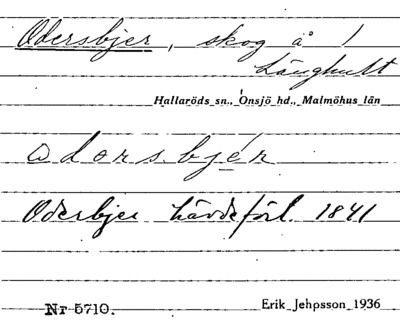 Odersbjer, skog å 1
Långhult
Hallaröds sn., Onsjö hd., Malmöhus län
odorsbjér
Oderbjer Hävdeförl. 1841
Nr 5710.
Erik Jehpsson 1936